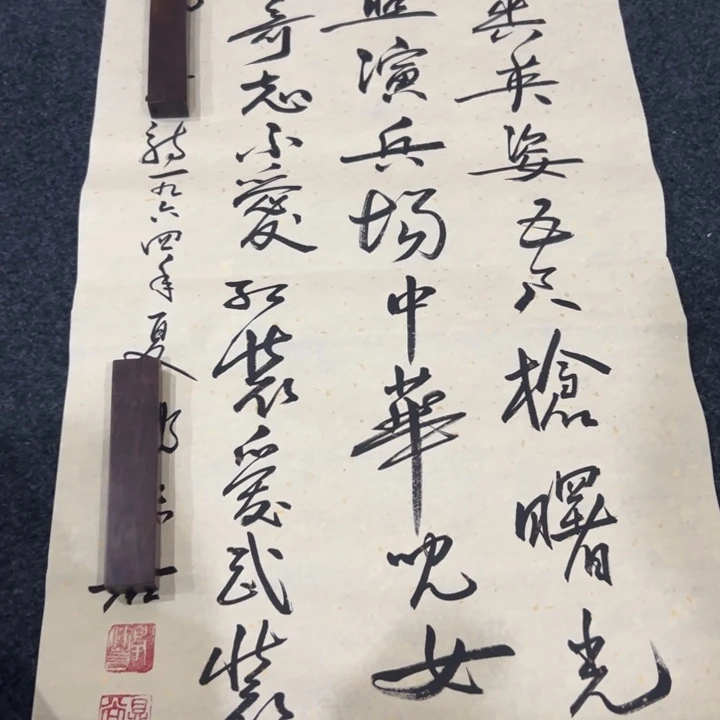 爽英姿五尺槍曙光
照演兵場中華兒女
奇志不愛紅裝愛武裝
詩一九六四年夏